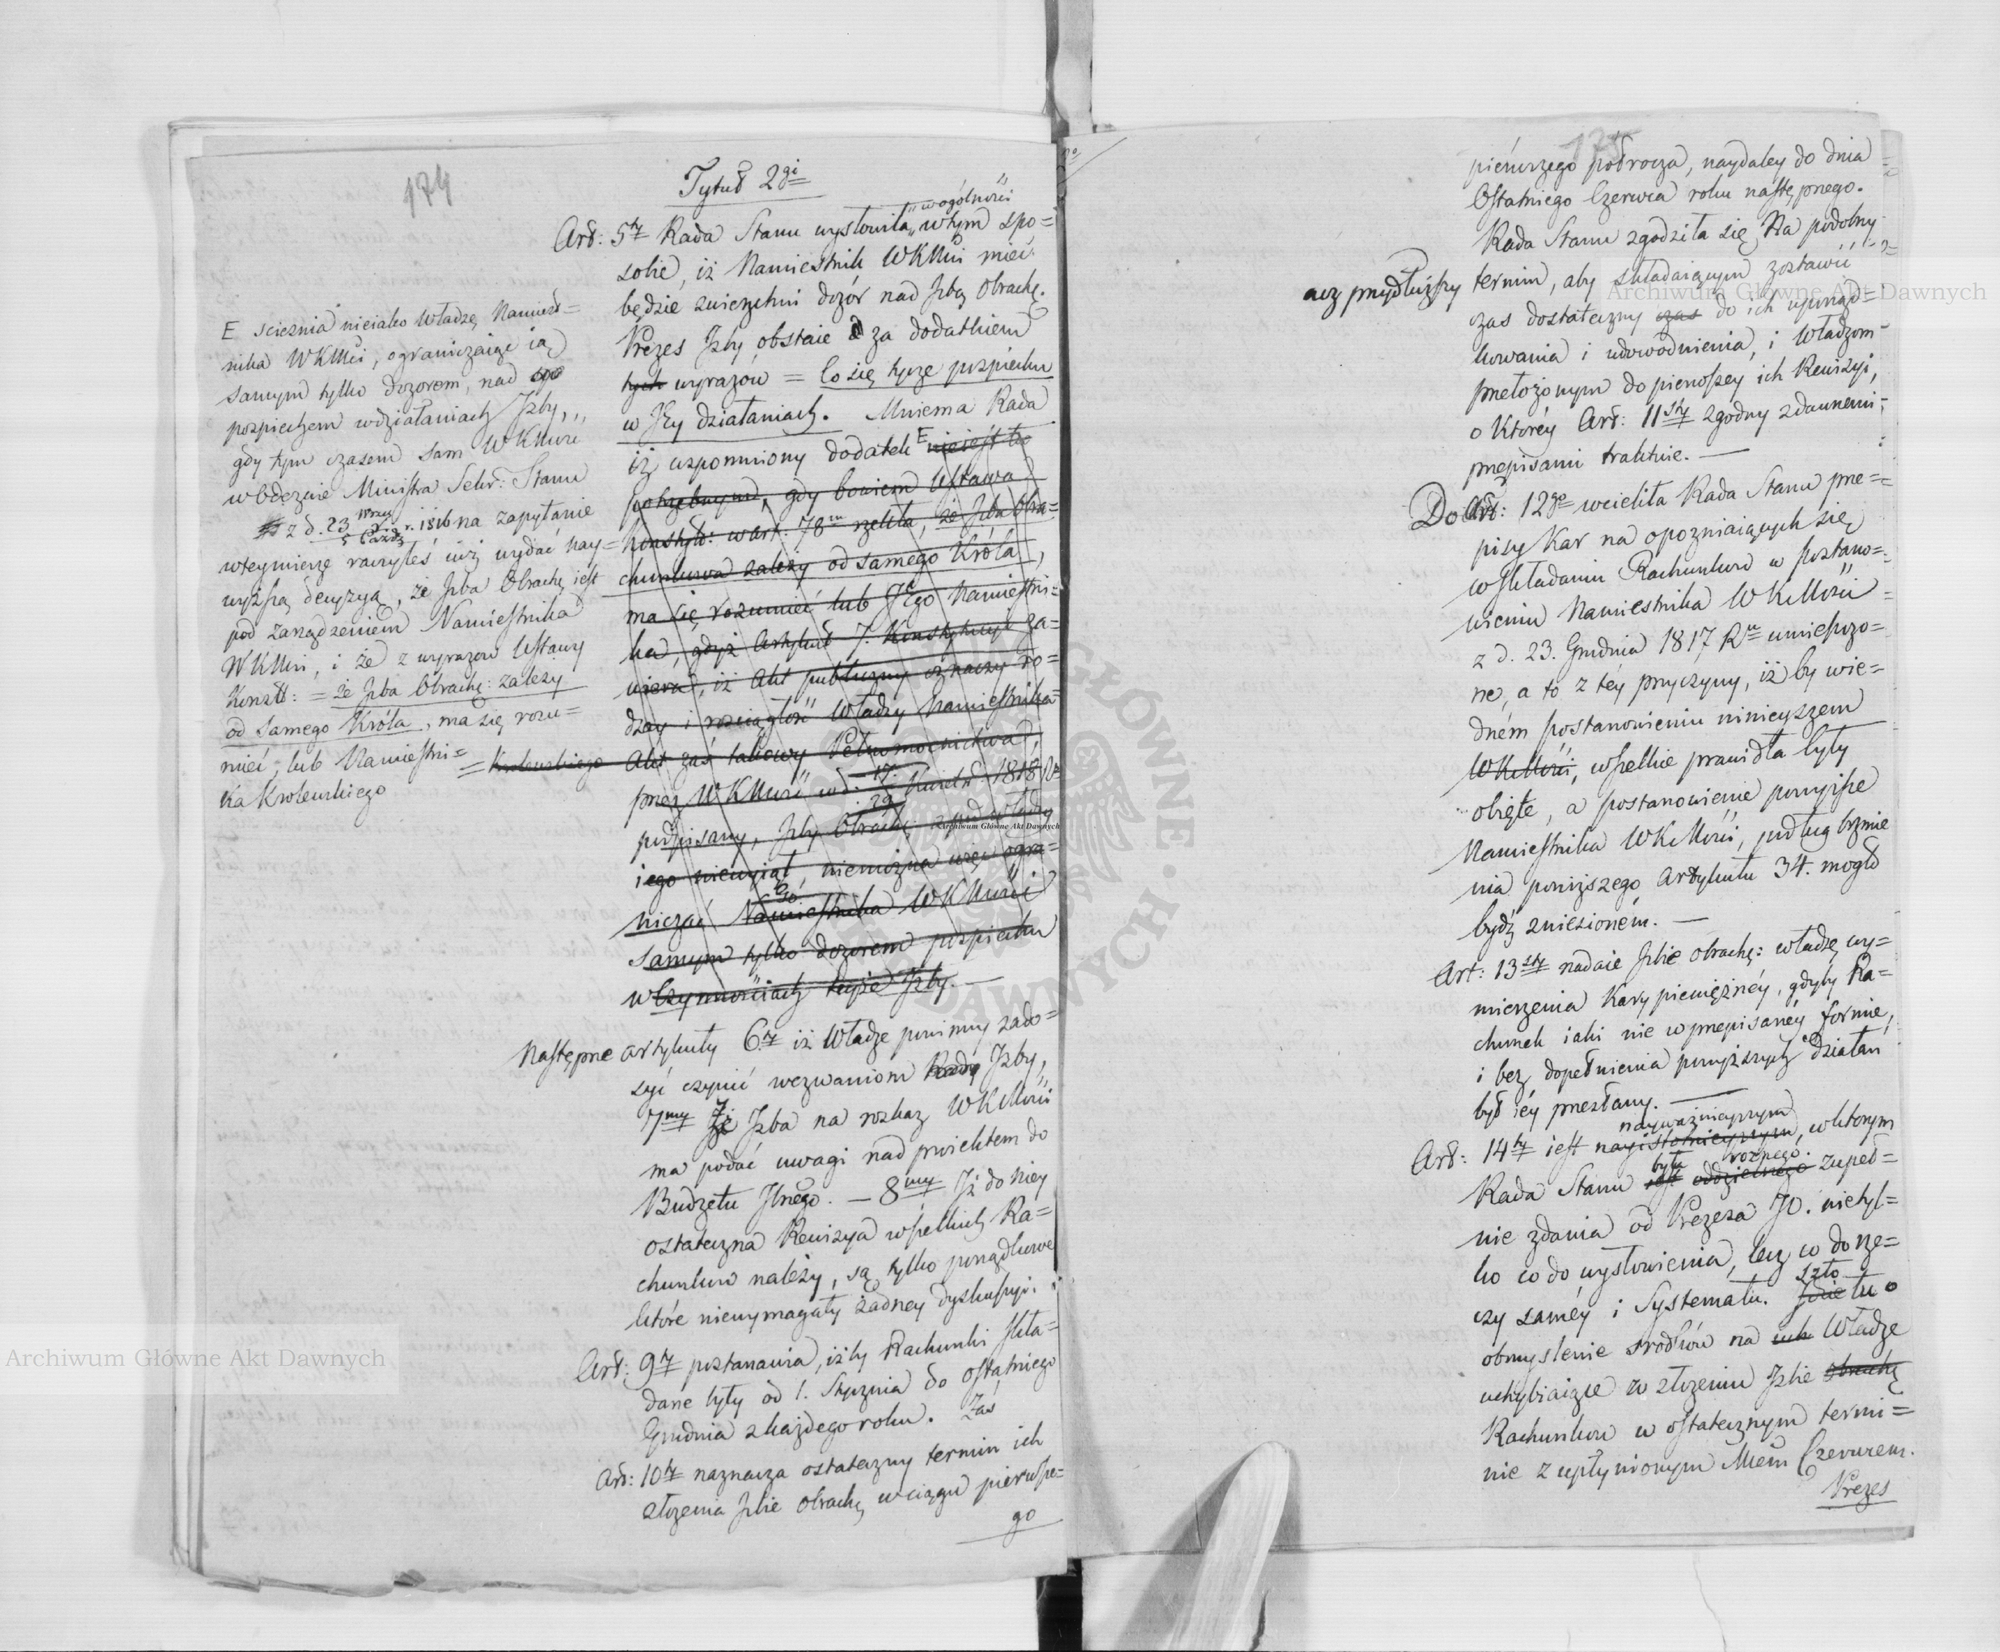 174
Tytuł 2gi
Art: 5ty Rada Stanu wysłowiła „w ogólności w tym spo=
sobie, iż Namiestnik WKMci mieć
będzie zwierzchni dozór nad Jzbą Obrachę.
Prezes Jzby obstaie za dodatkiem
tych wyrazów = co się tycze pospiechu
w Jey działaniach. Mniema Rada
iż wspomniony dodatek E nieiest
potrzebnym, gdy bowiem Ustawa
Konstyt: w art: 78m rzekła, że Jzba Obra=
chunkowa zależy od samego Króla,
ma się rozumieć lub JEgo Namiestni=
ka, gdyż Artykuł 7. Konstytucyi za=
wiera, iż Akt publiczny oznaczy ro=
dzay i rozciągłość władzy Namiestnika
= Krolewskiego Akt zaś takowy Pełnomocnictwa,
przez WKMość w d. 17/29 Kwietn: 1818 R.
podpisany, Jzby Obrachę: z pod władzy
iego niewyiął, niemożna więc ogra=
niczać Go Namiestnika WKMości
samym tylko dozorem pospiechu
w Czynnościach teyże Jzby. —
E scieśnia nieiako władzę Namiest=
nika WKMci, ograniczaiąc ią
samym tylko dozorem, nad
pospiechem w działaniach Jzby,
gdy tym czasem sam WKMość
w Odezwie Ministra Sekr: Stanu
z d. 23 Wrześ. / 5 Paźdz r. 1816 na zapytanie
w teymierze raczyłeś iuż wydać nay=
wyższą decyzyą, że Jzba Obrachę iest
pod zarządzeniem Namiestnika
WKMci, i że z wyrazow Ustawy
Konst: = że Jzba Obrachę: zależy
od samego Króla, ma się rozu=
mieć, lub Namiestni=
ka Krolewskiego
Następne artykuły 6ty iż Władze powinny zado=
syć czynić wezwaniom Rady Jzby,
7my Jż Jzba na rozkaz WKMości
ma podać uwagi nad proiektem do
Budżetu Jlnego. — 8my Jż do niey
ostateczna Rewizya wszelkich Ra=
chunkow należy, są tylko porządkowe
które niewymagały żadney dyskussyi.
Art: 9ty postanawia, iżby Rachunki skła=
dane były od 1. Stycznia do ostatniego
Grudnia z każdego roku. Zaś
Art: 10ty naznacza ostateczny termin ich
złożenia Jzbie obrachę w ciągu pierwsze=
go
175
pierwszego półrocza, naydaley do dnia
Ostatniego Czerwca roku następnego.
Rada Stanu zgodziła się, Na podobny
acz przydłuższy termin, aby składaiącym zostawić
czas dostateczny czas do ich uporząd=
kowania i udowodnienia, i Władzom
przełożonym do pierwszey ich Rewizyi,
o którey Art: 11sty zgodny z dawnemi
przepisami traktuie. —
Do Art: 12go wcieliła Rada Stanu prze=
pisy Kar na opozniaiących się
w składaniu Rachunkow w postano=
wieniu Namiestnika WKMości
z d. 23. Grudnia 1817 Ru umieszczo=
ne, a to z téy przyczyny, iż by w ie=
dném postanowieniu ninieyszem
WKMości, wszelkie prawidła były
obięte, a postanowienie powyższe
Namiestnika WKMości, podług brzmie
nia poniższego artykułu 34. mogło
bydź zniesioném. —
Art: 13sty nadaie Jzbie obrachę: władzę wy=
mierzenia Kary pieniężnéy, gdyby Ra=
chunek iaki nie w przepisanéy formie,
i bez dopełnienia powyższych działań
był iéy przesłany. —
Art: 14ty iest nayistotnieyszym nayważnieyszym, w którym
Rada Stanu iest była oddzielnego rożnego zupeł=
nie zdania od Prezesa JO. nietyl=
ko co do wysłowienia, lecz co do rze=
czy saméy i Systematu. Jdzie Szło tu o
obmyslenie srodków na ich Władze
uchybiaiące w złożeniu Jzbie obrachę
Rachunkow w ostatecznym termi=
nie z upłynionym Miem Czerwcem.
Prezes
Archiwum Główne Akt Dawnych
Archiwum Główne Akt Dawnych
Archiwum Główne Akt Dawnych